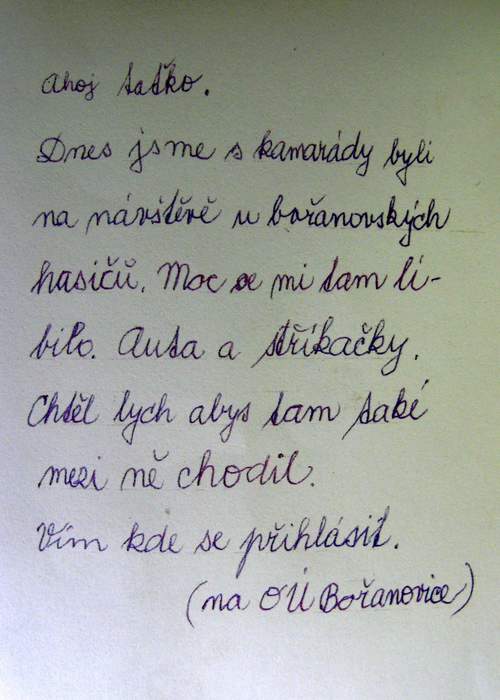 Ahoj taťko.
Dnes jsme s kamarády byli
na návštěvě u bořanovských
hasičů. Moc se mi tam lí-
bilo. Auta a stříkačky.
Chtěl bych abys tam také
mezi ně chodil.
Vím kde se přihlásit.
(na OÚ Bořanovice)